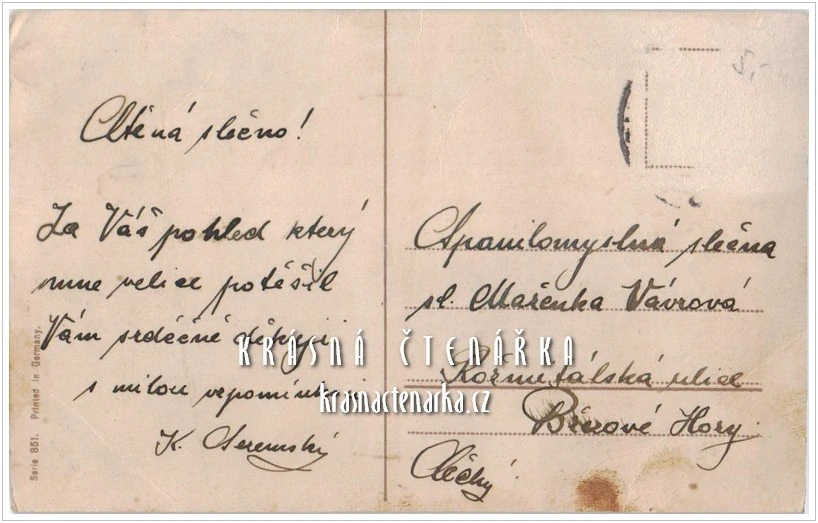 Ctěná slečno!
Za Váš pohled který
mne velice potěšil
Vám srdečně děkuji
s milou vzpomínkou
K.
Serie 851. Printed in Germany.
5,-
slečna
sl. Mařenka Vávrová
ulice
Březové Hory
Čechy
KRÁSNÁ ČTENÁŘKA
krasnactenarka.cz